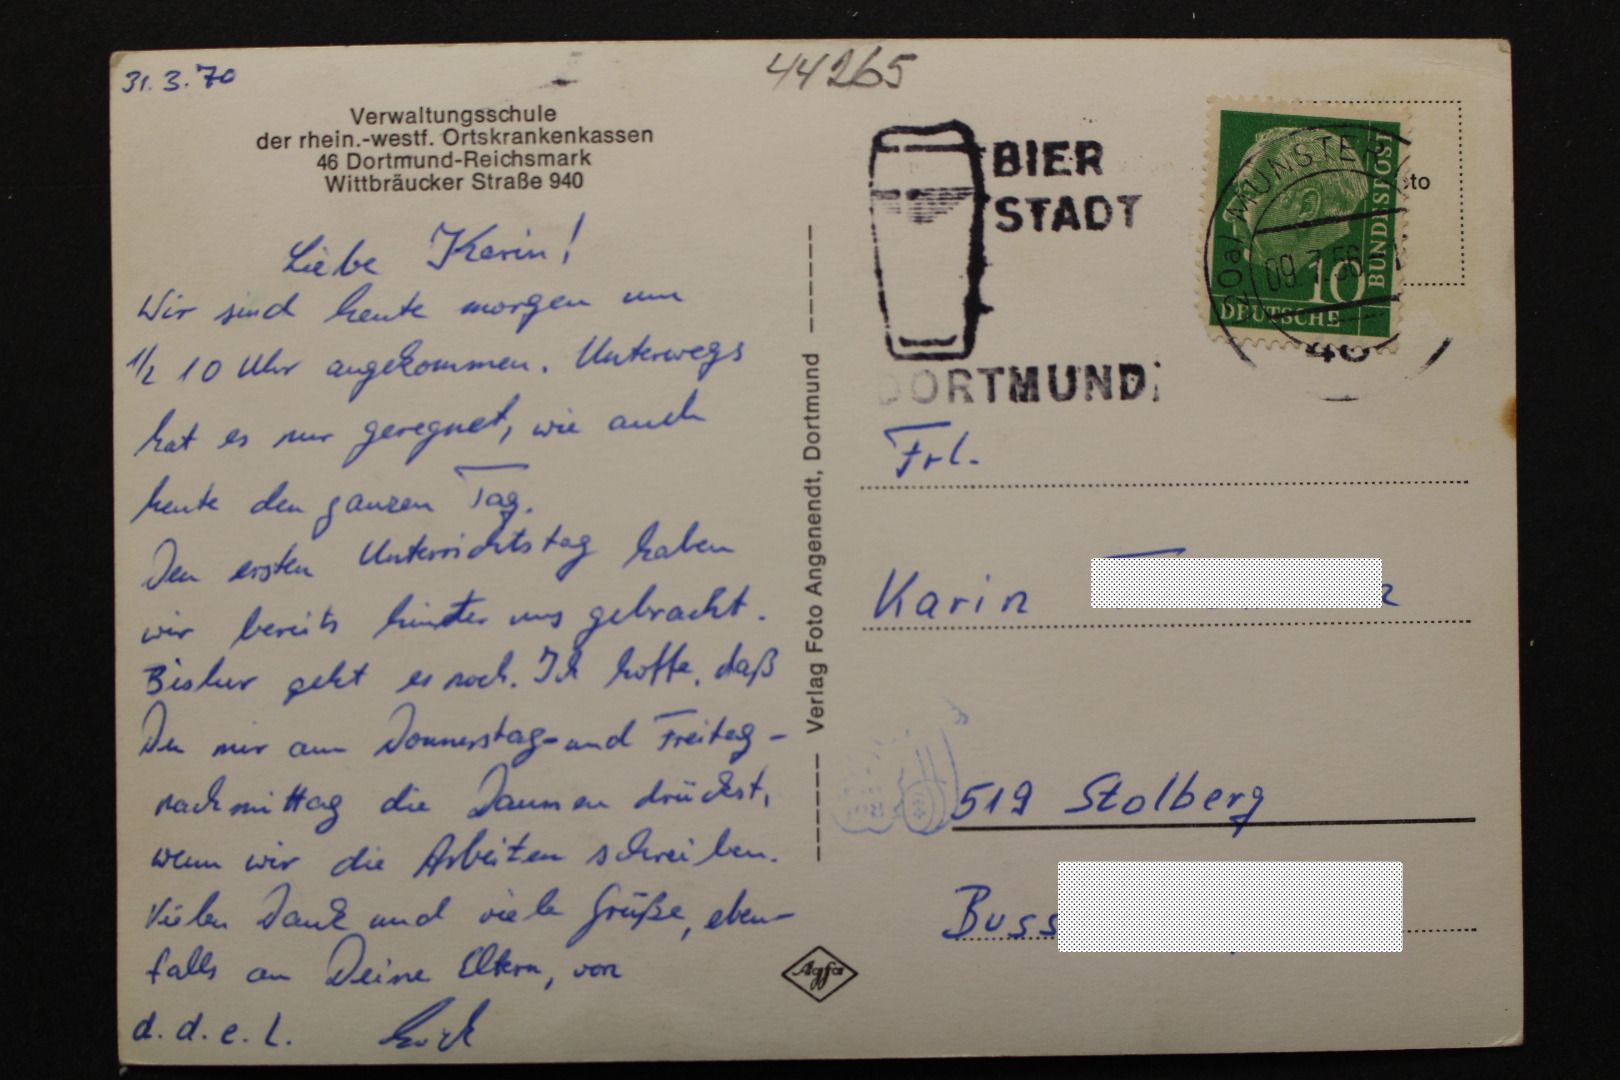 31.3.70
44265
Verwaltungsschule
der rhein.-westf. Ortskrankenkassen
46 Dortmund-Reichsmark
Wittbräucker Straße 940
Liebe Karin!
Wir sind heute morgen um
1/2 10 Uhr angekommen. Unterwegs
hat es nur geregnet, wie auch
heute den ganzen Tag.
Den ersten Unterrichtstag haben
wir bereits hinter uns gebracht.
Bisher geht es noch. Ich hoffe, daß
Du mir am Donnerstag- und Freitag-
nachmittag die Daumen drückst,
wenn wir die Arbeiten schreiben.
Vielen Dank und viele Grüße, eben-
falls an Deine Eltern, von
d. d. e. l.
Verlag Foto Angenendt, Dortmund
BIER
STADT
DORTMUND
(20a) MÜNSTER
09.7.56
10
DEUTSCHE
BUNDESPOST
Frl.
Karin
519 Stolberg
Buss
Agfa